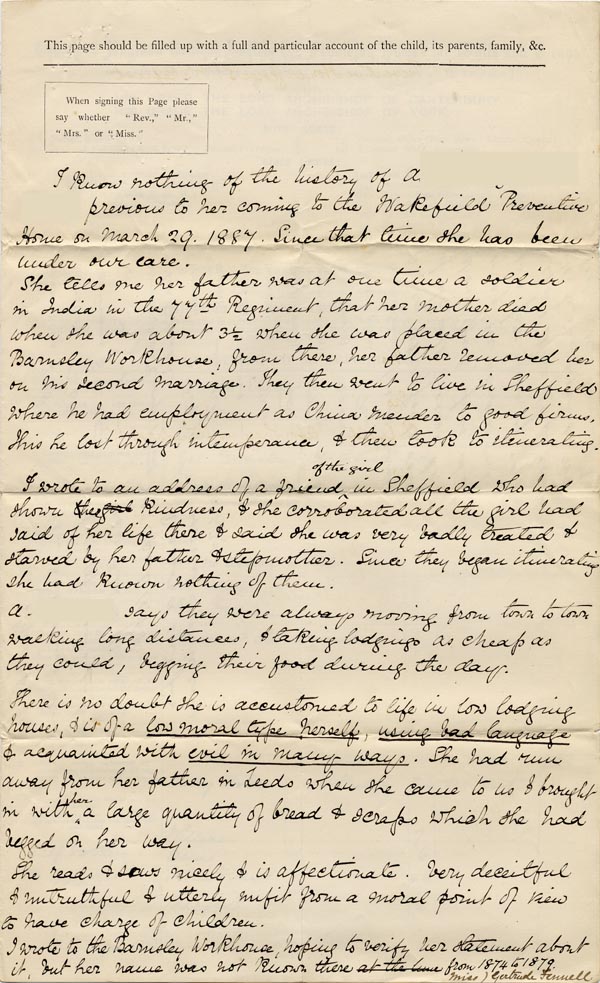 This page should be filled up with a full and particular account of the child, its parents, family, &c.
When signing this Page please
say whether "Rev.," "Mr.,"
"Mrs." or "Miss."
I know nothing of the history of A
previous to her coming to the Wakefield Preventive
Home on March 29. 1887. Since that time she has been
under our care.
She tells me her father was at one time a soldier
in India in the 77th Regiment, that her mother died
when she was about 3½ when she was placed in the
Barnsley Workhouse, from there, her father removed her
on his second marriage. They then went to live in Sheffield
where he had employment as China mender to good firms.
This he lost through intemperance, & then took to itinerating.
of the girl
I wrote to an address of a friend in Sheffield who had
shown the girl kindness, & she corroborated all the girl had
said of her life there & said she was very badly treated &
starved by her father & stepmother. Since they began itinerating
she had known nothing of them.
A. says they were always moving from town to town
walking long distances, & taking lodgings as cheap as
they could, begging their food during the day.
There is no doubt she is accustomed to life in low lodging
houses, & is of a low moral type herself, using bad language
& acquainted with evil in many ways. She had run
away from her father in Leeds when she came to us & brought
in with her a large quantity of bread & scraps which she had
begged on her way.
She reads & sews nicely & is affectionate. Very deceitful
& untruthful & utterly unfit from a moral point of view
to have charge of children.
I wrote to the Barnsley Workhouse, hoping to verify her statement about
it, but her name was not known there at the time from 1874 to 1879.
(Miss) Gertrude Fennell